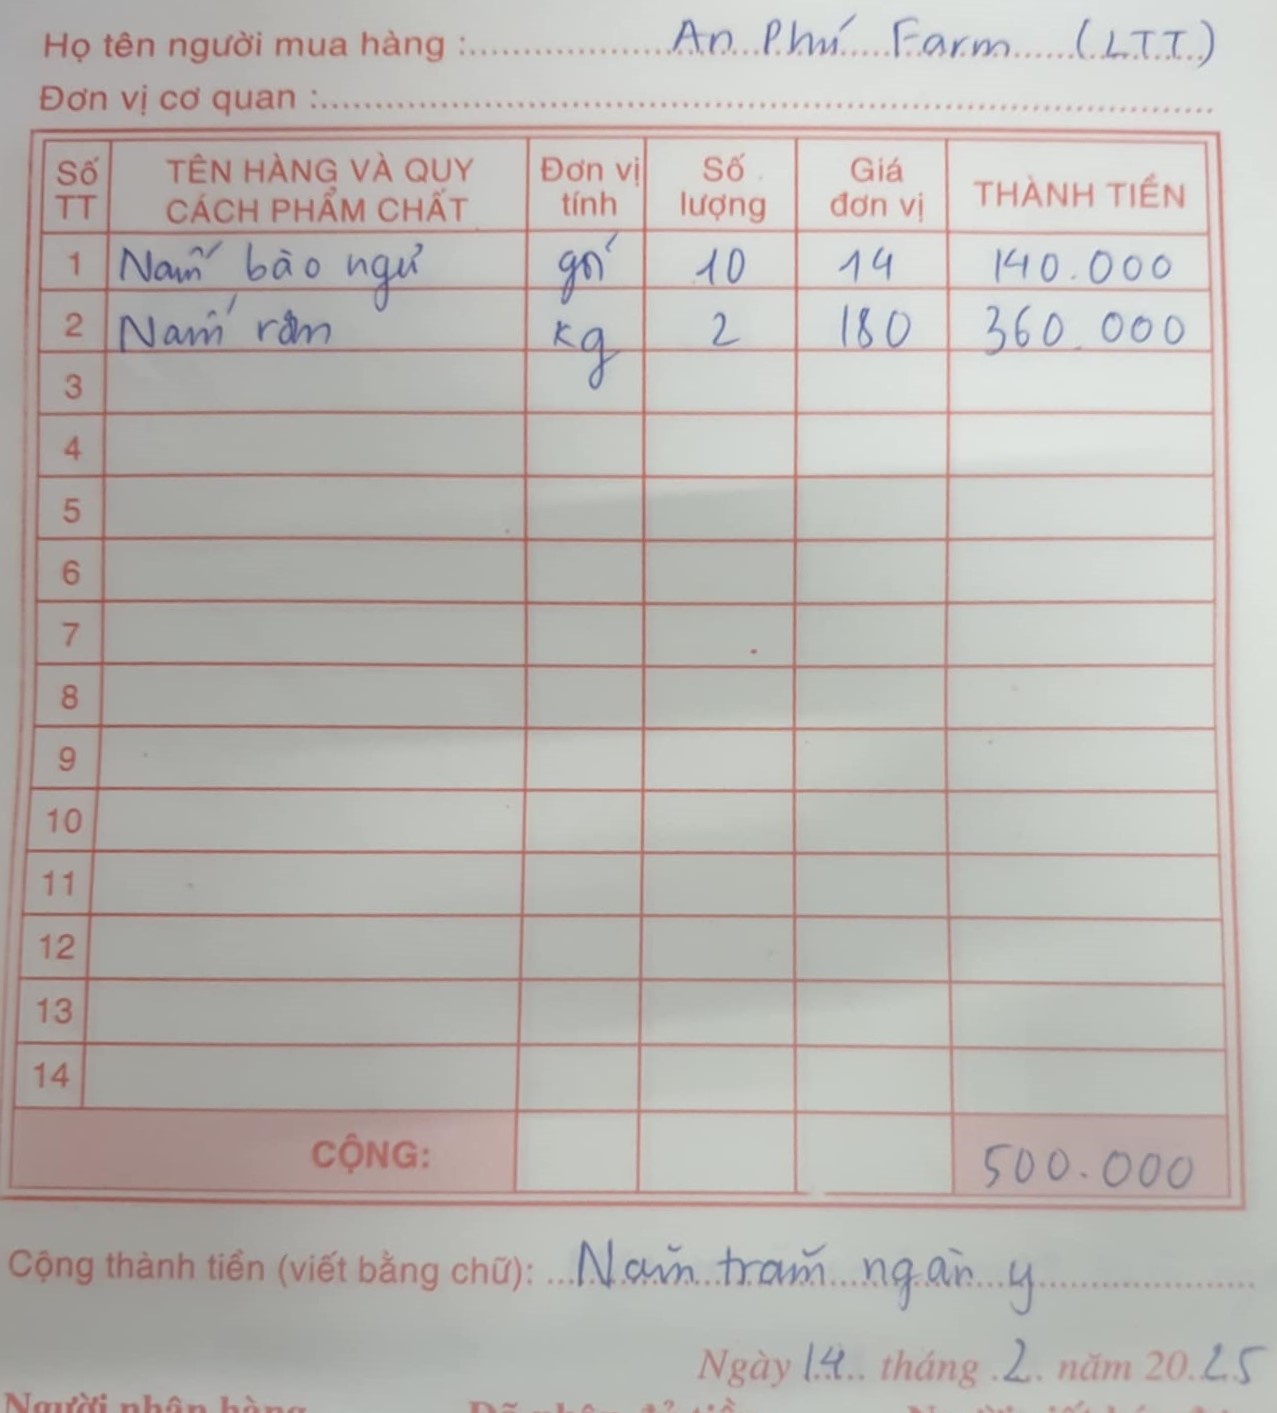 Họ tên người mua hàng : An Phú Farm (LTT)
Đơn vị cơ quan :
Số TT TÊN HÀNG VÀ QUY CÁCH PHẨM CHẤT Đơn vị tính Số lượng Giá đơn vị THÀNH TIỀN
1 Nấm bào ngư gói 10 14 140.000
2 Nấm rơm kg 2 180 360.000
3
4
5
6
7
8
9
10
11
12
13
14
CỘNG: 500.000
Cộng thành tiền (viết bằng chữ): Năm trăm ngàn y
Ngày 14 tháng 2 năm 2025
Người nhận hàng